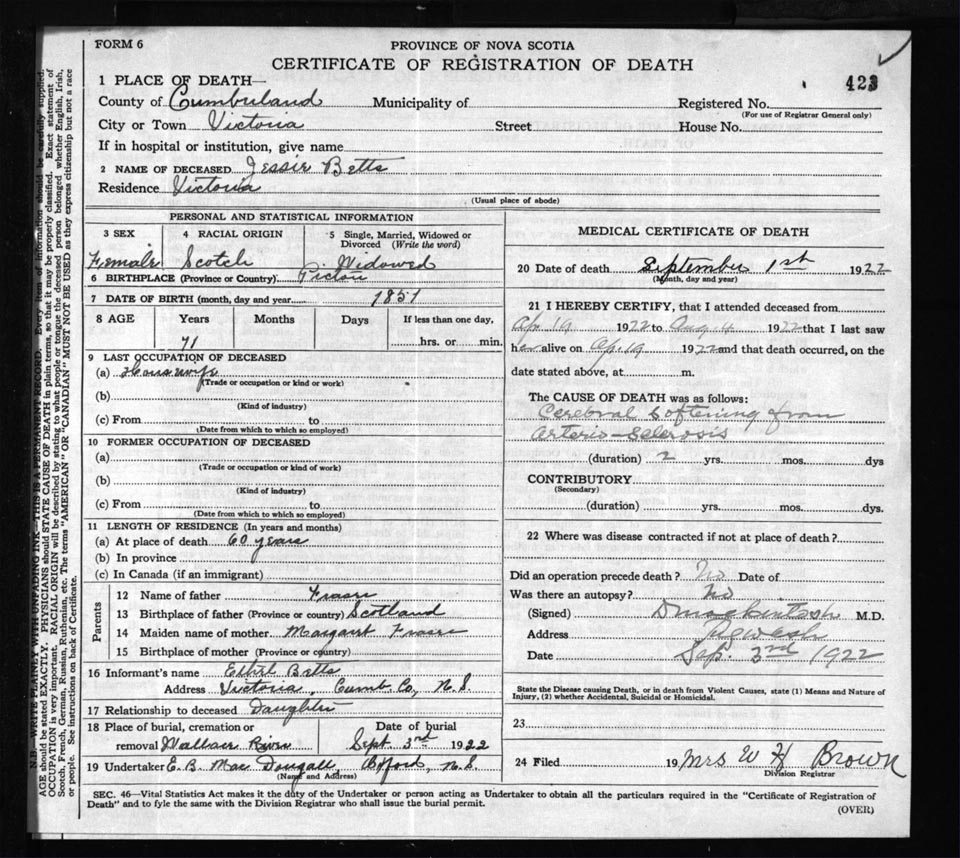 FORM 6
PROVINCE OF NOVA SCOTIA
CERTIFICATE OF REGISTRATION OF DEATH
423
1 PLACE OF DEATH—
County of Cumberland Municipality of Registered No.
(For use of Registrar General only)
City or Town Victoria Street House No.
If in hospital or institution, give name
2 NAME OF DECEASED Jessie Betts
Residence Victoria
(Usual place of abode)
PERSONAL AND STATISTICAL INFORMATION
3 SEX 4 RACIAL ORIGIN 5 Single, Married, Widowed or Divorced (Write the word)
Female Scotch Widowed
6 BIRTHPLACE (Province or Country) Pictou
7 DATE OF BIRTH (month, day and year 1851
8 AGE Years Months Days If less than one day,
71 hrs. or min.
9 LAST OCCUPATION OF DECEASED
(a) Housewife
(Trade or occupation or kind or work)
(b)
(Kind of industry)
(c) From to
(Date from which to which so employed)
10 FORMER OCCUPATION OF DECEASED
(a)
(Trade or occupation or kind of work)
(b)
(Kind of industry)
(c) From to
(Date from which to which so employed)
11 LENGTH OF RESIDENCE (In years and months)
(a) At place of death 60 years
(b) In province
(c) In Canada (if an immigrant)
Parents
12 Name of father Fraser
13 Birthplace of father (Province or country) Scotland
14 Maiden name of mother Margaret Fraser
15 Birthplace of mother (Province or country)
16 Informant's name Ethel Betts
Address Victoria, Cumb Co, N.S.
17 Relationship to deceased Daughter
18 Place of burial, cremation or Date of burial
removal Wallace River Sept 3rd 1922
19 Undertaker E. B. Mac Dougall, Oxford, N.S.
(Name and Address)
MEDICAL CERTIFICATE OF DEATH
20 Date of death September 1st 1922
(Month, day and year)
21 I HEREBY CERTIFY, that I attended deceased from
Apr 19 1922 to Aug 4 1922 that I last saw
her alive on Ap. 19 1922 and that death occurred, on the
date stated above, at m.
The CAUSE OF DEATH was as follows:
Cerebral Softening from
Arterio-Sclerosis
(duration) 2 yrs. mos. dys
CONTRIBUTORY
(Secondary)
(duration) yrs. mos. dys.
22 Where was disease contracted if not at place of death?
Did an operation precede death? No Date of
Was there an autopsy? No
(Signed) D Mackintosh M.D.
Address Pugwash
Date Sep. 3rd 1922
State the Disease causing Death, or in death from Violent Causes, state (1) Means and Nature of
Injury, (2) whether Accidental, Suicidal or Homicidal.
23
24 Filed 19 Mrs W H Brown
Division Registrar
SEC. 46—Vital Statistics Act makes it the duty of the Undertaker or person acting as Undertaker to obtain all the particulars required in the "Certificate of Registration of
Death" and to fyle the same with the Division Registrar who shall issue the burial permit.
(OVER)
N.B. WRITE PLAINLY WITH UNFADING INK—THIS IS A PERMANENT RECORD. Every item of information should be carefully supplied.
AGE should be stated EXACTLY. PHYSICIANS should STATE CAUSE OF DEATH in plain terms, so that it may be properly classified. Exact statement of
OCCUPATION is very important. RACIAL ORIGIN will be described by stating to what people or tongue the deceased person belonged whether English, Irish,
Scotch, French, German, Russian, Ruthenian, etc. The terms "AMERICAN" OR "CANADIAN" MUST NOT BE USED as they express citizenship but not a race
or people. See instructions on back of Certificate.